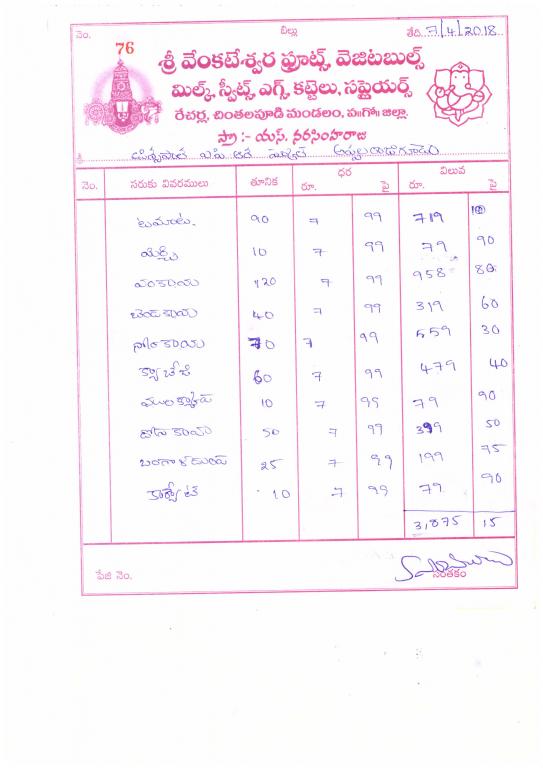 నెం. బిల్లు తేది. 7/4/2018
76
శ్రీ వేంకటేశ్వర ఫ్రూట్స్, వెజిటబుల్స్
మిల్క్, స్వీట్స్, ఎగ్స్, కట్టెలు, సప్లైయర్స్
రేచర్ల, చింతలపూడి మండలం, ప॥గో॥ జిల్లా.
ప్రొ :- యస్. నరసింహరాజు
శ్రీ
నెం. సరుకు వివరములు తూనిక ధర విలువ
రూ. పై రూ. పై
టమాటా. 90 7 99 719 10
మిర్చి 10 7 99 79 90
వంకాయ 120 7 99 958 80
బెండకాయ 40 7 99 319 60
70 7 99 559 30
క్యాబేజి 60 7 99 479 40
10 7 99 79 90
దోసకాయ 50 7 99 399 50
25 7 99 199 75
క్యారెట్ 10 7 99 79 90
3,875 15
పేజి నెం. సంతకం